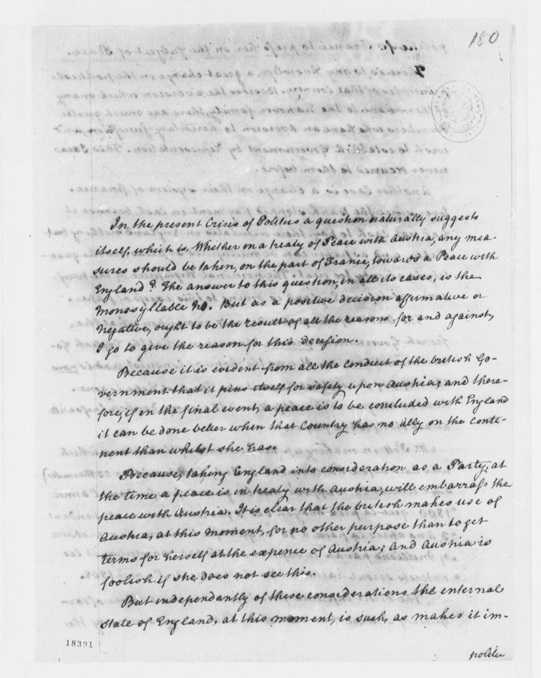 180
In the present Crisis of Politics a question naturally suggests
itself, which is, Whether in a treaty of Peace with Austria, any mea-
sures should be taken, on the part of France, towards a Peace with
England? The answer to this question, in all its cases, is the
Monosyllable No. But as a positive decision affirmative or
Negative, ought to be the result of all the reasons for and against,
I go to give the reason for this decision.
Because it is evident from all the conduct of the british Go-
vernment that it pins itself for safety upon Austria; and there-
fore, if in the final event, a peace is to be concluded with England
it can be done better when that Country has no ally on the conti-
nent than whilst she has.
Because, taking England into consideration as a Party, at
the time a peace is in treaty with Austria, will embarrass the
peace with Austria. It is clear that the british makes use of
Austria, at this moment, for no other purpose than to get
terms for herself at the expence of Austria; and Austria is
foolish if she does not see this.
But independantly of these considerations the internal
state of England, at this moment, is such, as makes it im-
politic
18391